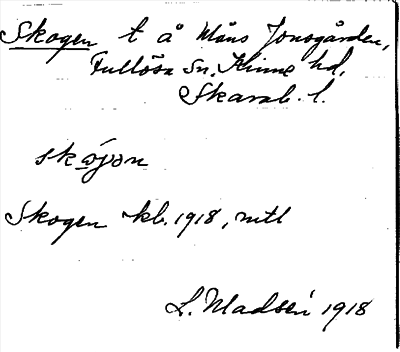 Skogen t å Måns Jonsgården,
Fullösa Sn, Kinne hd,
Skarab. l.
skoɣən
Skogen kb. 1918, mtl
L. Madsén 1918